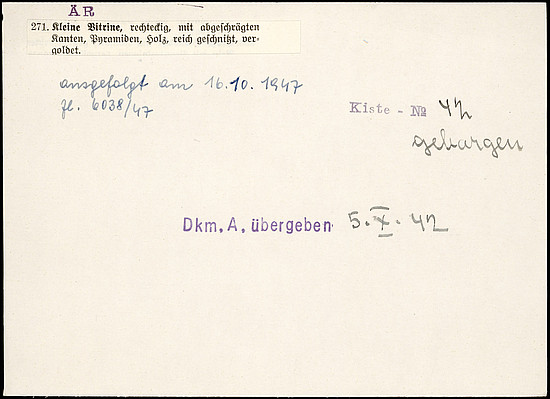 ÄR
271. Kleine Vitrine, rechteckig, mit abgeschrägten
Kanten, Pyramiden, Holz, reich geschnitzt, ver-
goldet.
ausgefolgt am 16.10.1947
Zl. 6038/47
Kiste - № 42
geborgen
Dkm. A. übergeben 5. X. 42